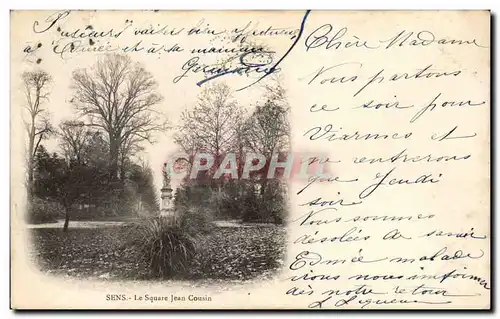 "Puscears" vasties bien affectueux
à Edmée et à ta maman
Germaine
Chère Madame
Nous partons
ce soir pour
Viarmes et
ne rentrerons
que Jeudi
soir.
Nous sommes
désolées de savoir
Edmée malade
nous nous informer
dès notre retour
L. Ligueux
CPARAMA
SENS. - Le Square Jean Cousin